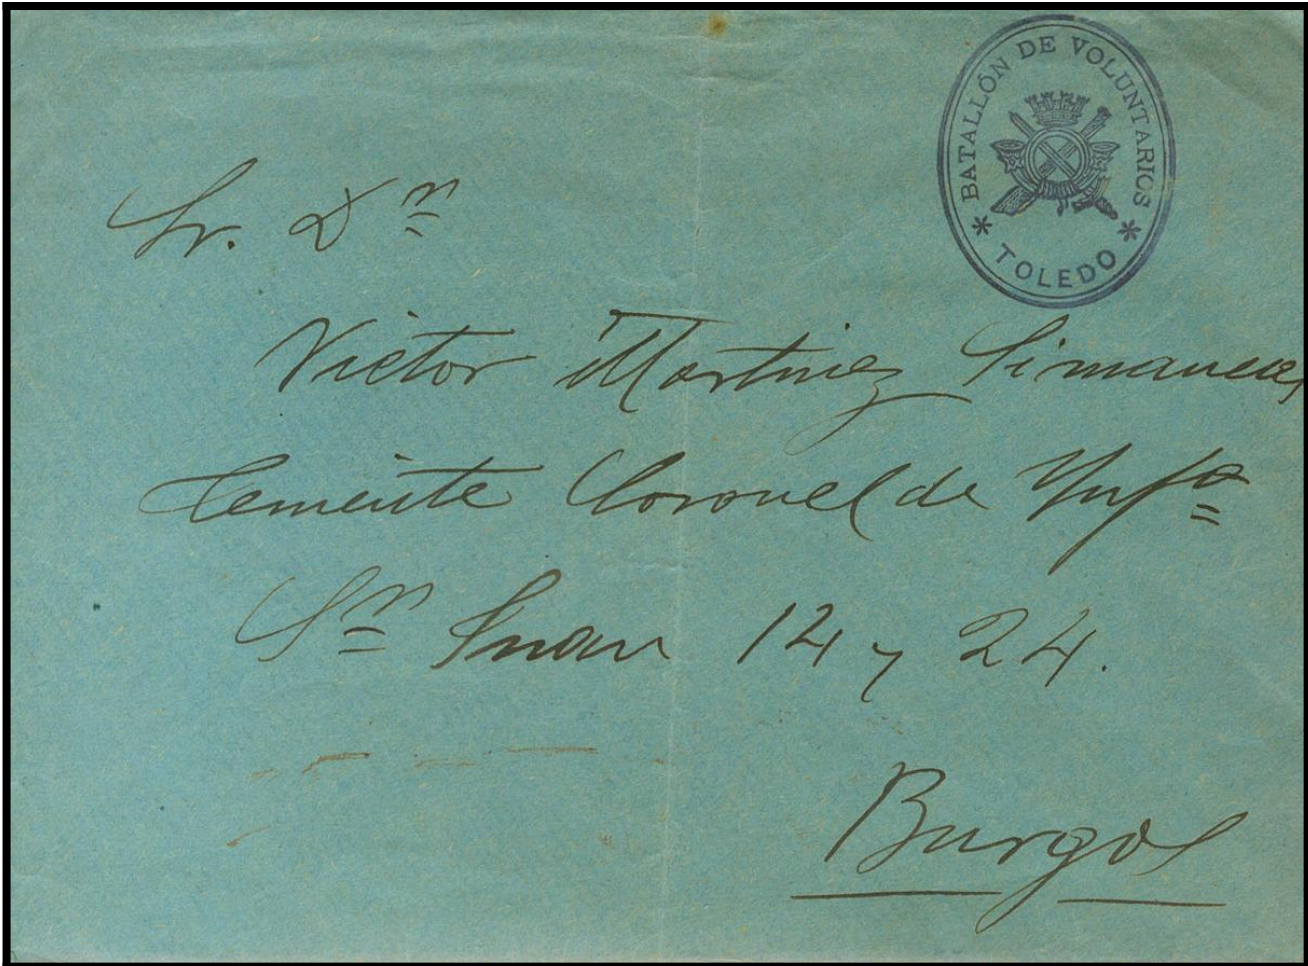 BATALLÓN DE VOLUNTARIOS
* TOLEDO *
Sr. Dn
Victor Martinez Simancas
Teniente Coronel de Ynfa
Sn Juan 12 y 24.
Burgos